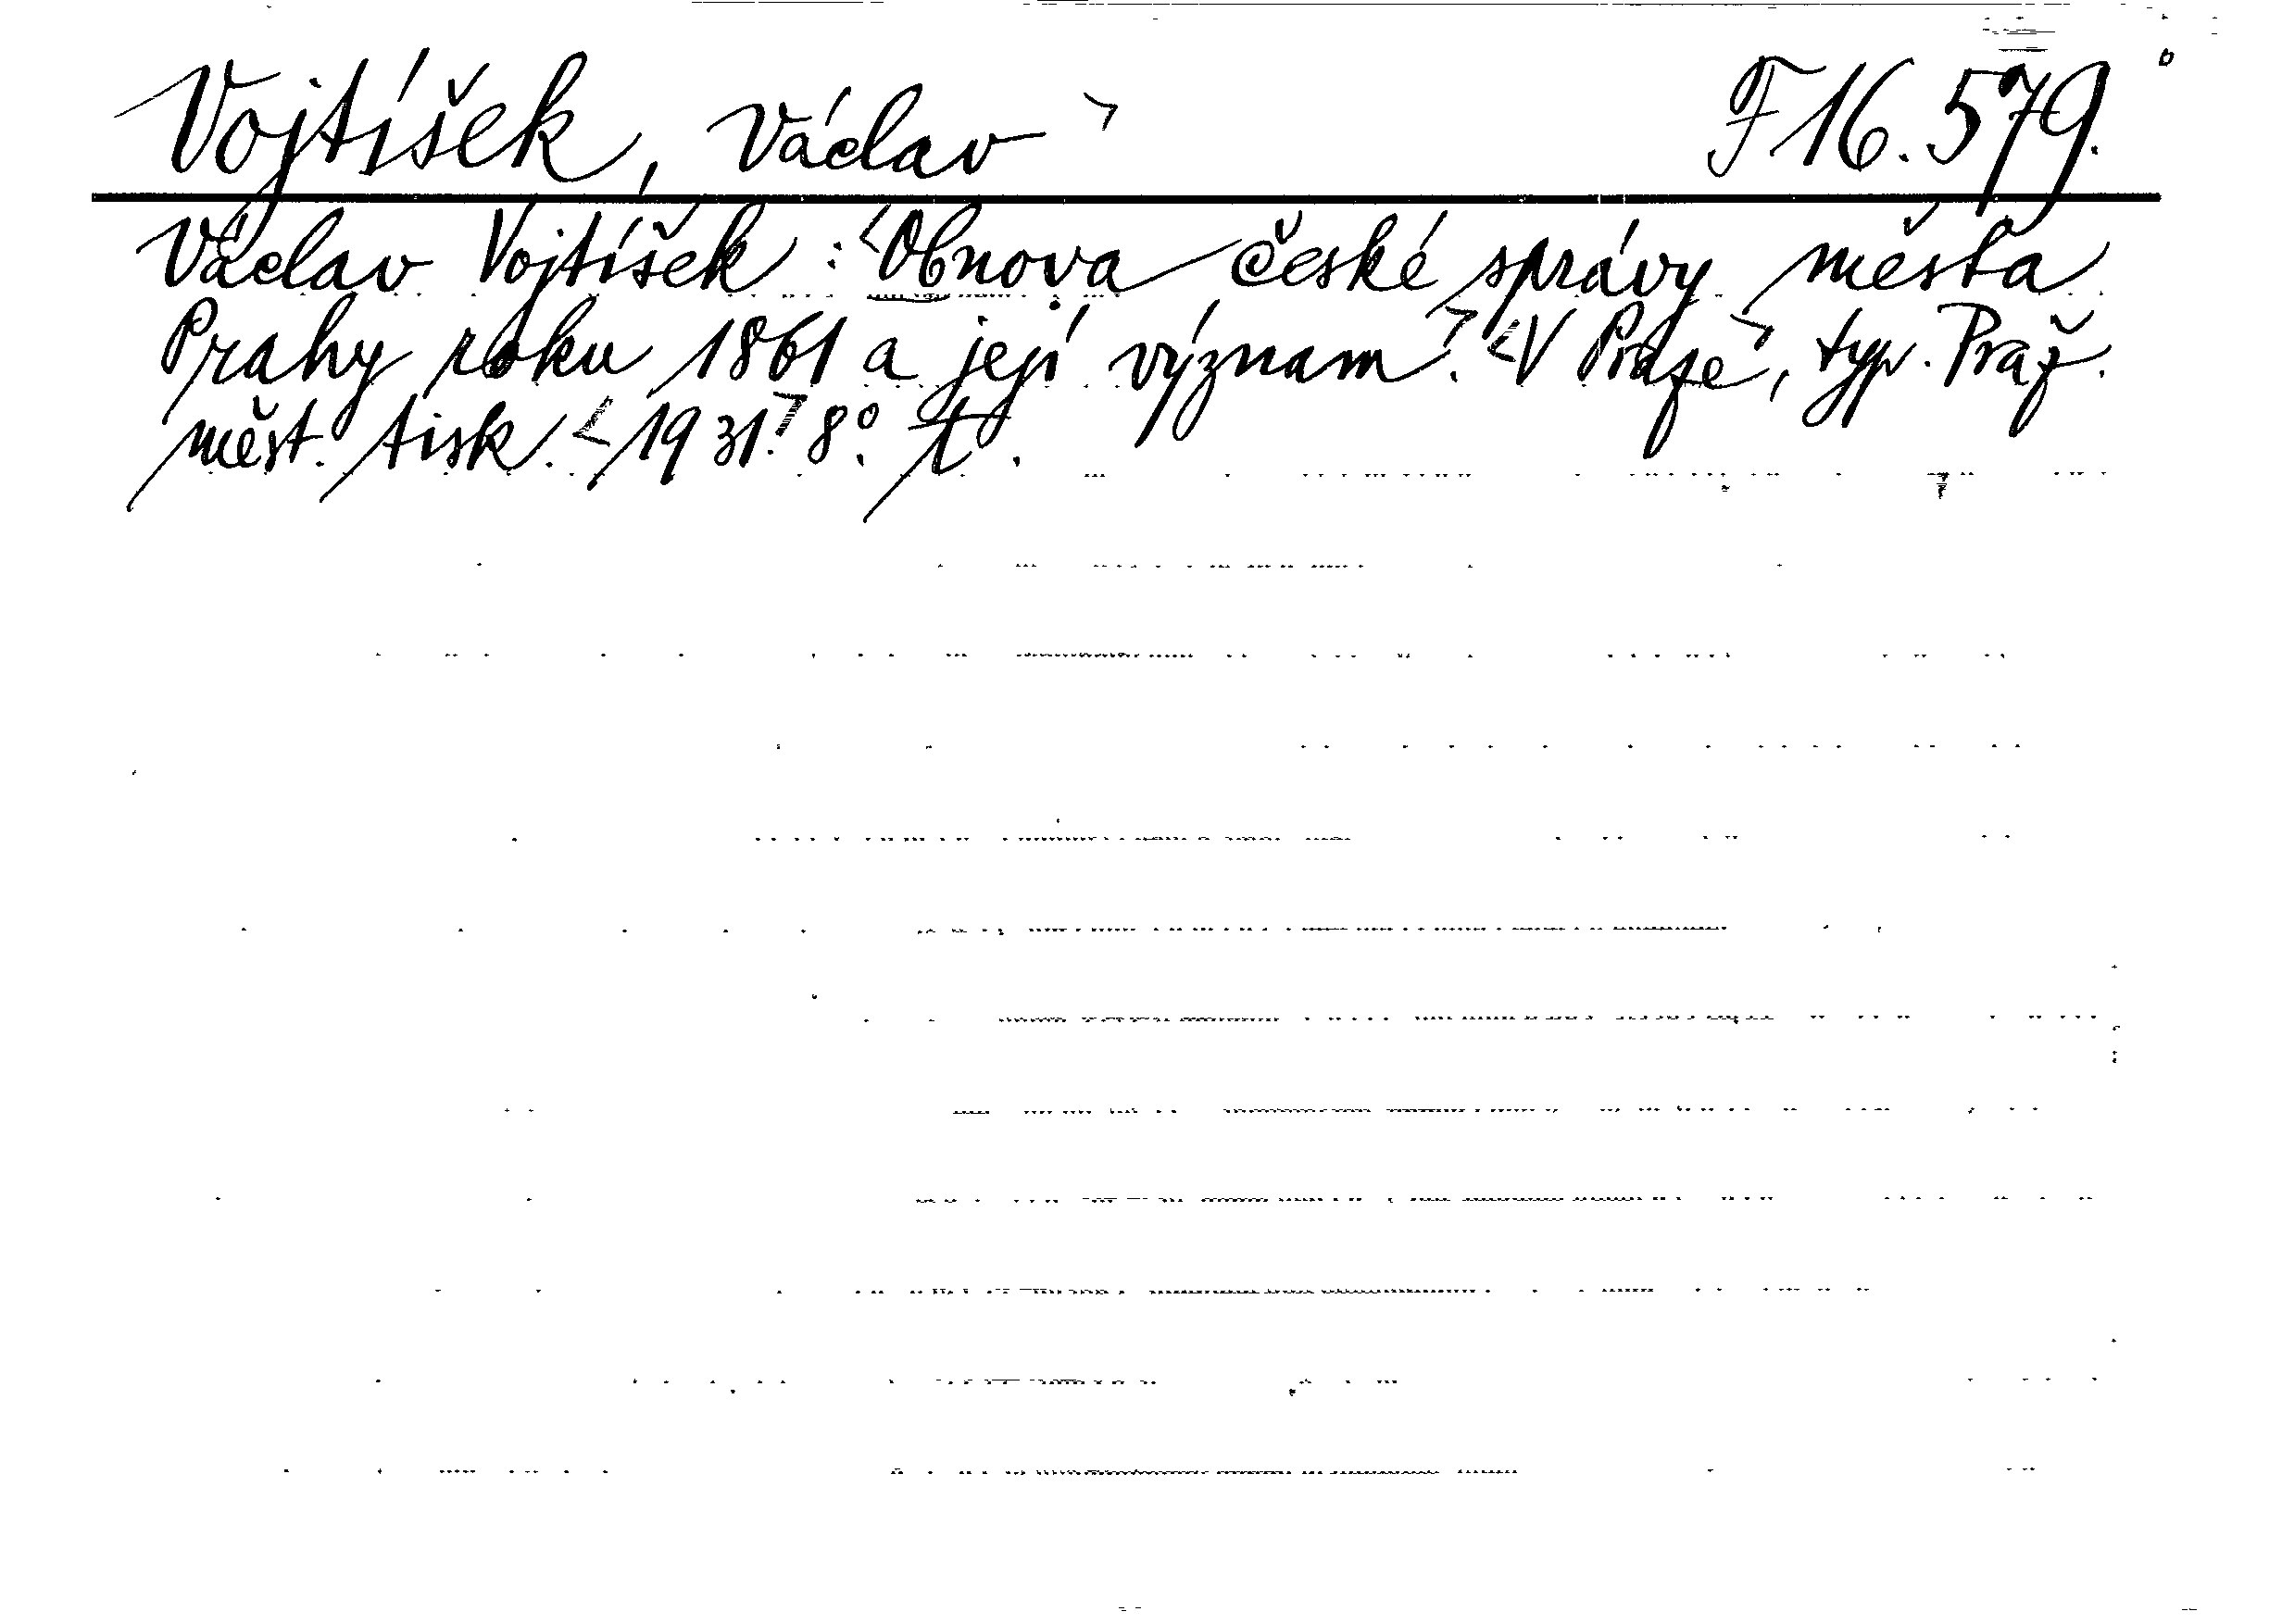 Vojtíšek, Václav > F 16.579.
Václav Vojtíšek : <Obnova české správy města
Prahy roku 1861 a její význam.> <V Praze>, typ. Praž.
měst. tisk. <1931.> 8°. t.